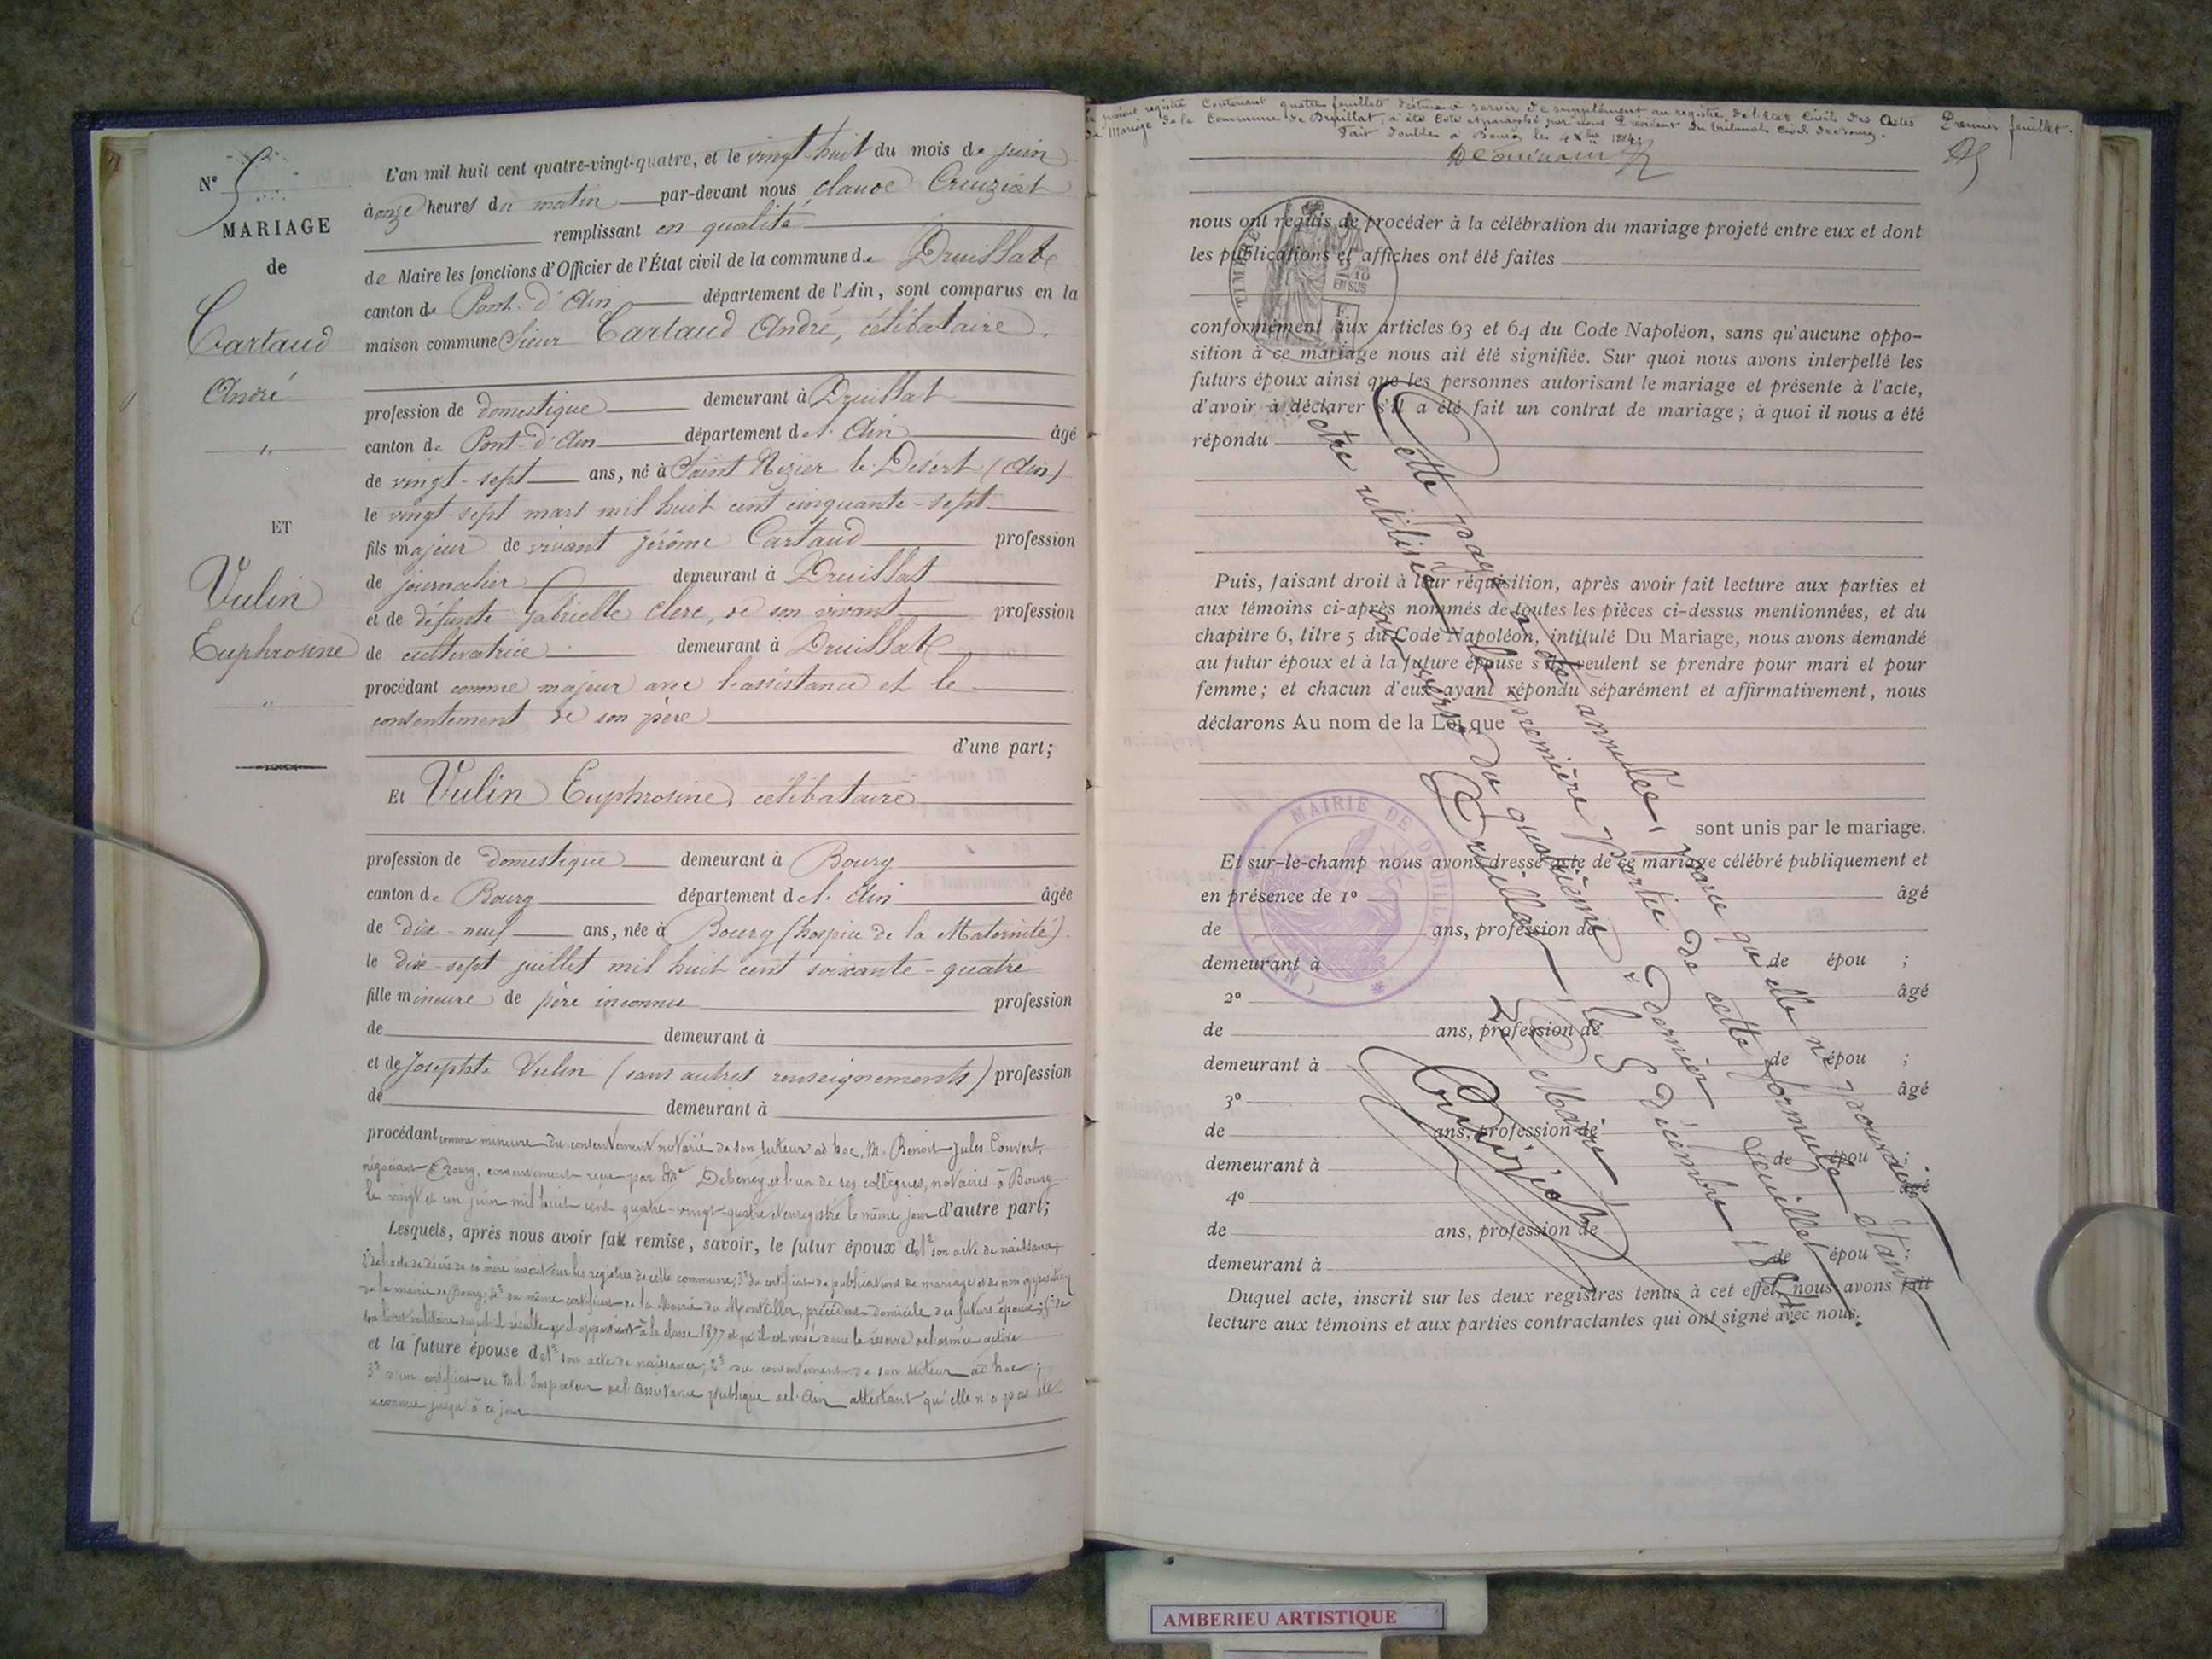 N° 5
MARIAGE
de
Cartaud
André
"
ET
Vulin
Euphrosine
"
L'an mil huit cent quatre-vingt-quatre, et le vingt-huit du mois de juin
à onze heures du matin par-devant nous Claude Cruiziat
remplissant en qualité
de Maire les fonctions d'Officier de l'État civil de la commune de Druillat
canton de Pont-d'Ain département de l'Ain, sont comparus en la
maison commune Sieur Cartaud André, célibataire.
profession de domestique demeurant à Druillat
canton de Pont-d'Ain département de l'Ain âgé
de vingt-sept ans, né à Saint Nizier le Désert (Ain)
le vingt-sept mars mil huit cent cinquante-sept
fils majeur de vivant Jérôme Cartaud profession
de journalier demeurant à Druillat
et de défunte Gabrielle Clerc, de son vivant profession
de cultivatrice demeurant à Druillat
procédant comme majeur avec l'assistance et le
consentement de son père
d'une part;
Et Vulin Euphrosine, célibataire
profession de domestique demeurant à Bourg
canton de Bourg département de l'Ain âgée
de dix-neuf ans, née à Bourg (hospice de la Maternité).
le dix-sept juillet mil huit cent soixante-quatre
fille mineure de père inconnu profession
de demeurant à
et de Josephte Vulin (sans autres renseignements) profession
de demeurant à
procédant comme mineure du consentement notarié de son tuteur ad hoc, M. Benoit-Jules Convert,
négociant à Bourg, consentement reçu par Me Debeney et l'un de ses collègues, notaires à Bourg
le vingt et un juin mil huit cent quatre-vingt-quatre enregistré le même jour d'autre part;
Lesquels, après nous avoir fait remise, savoir, le futur époux de 1° son acte de naissance;
2° de l'acte de décès de sa mère inscrit sur les registres de cette commune; 3° du certificat de publications de mariage et de non opposition
de la mairie de Bourg; 4° du même certificat de la Mairie du Montellier, précédent domicile des futurs époux; 5° de
son livret militaire duquel il résulte qu'il appartient à la classe 1877 et qu'il est versé dans la réserve de l'armée active
et la future épouse de 1° son acte de naissance; 2° du consentement de son tuteur ad hoc;
3° d'un certificat de M. l'Inspecteur de l'Assistance publique de l'Ain attestant qu'elle n'a pas été
reconnue jusqu'à ce jour
Le présent registre contenant quatre feuillets destiné à servir de supplément au registre de l'état civil des Actes
de Mariage de la commune de Druillat, a été coté et paraphé par nous Président du tribunal civil de Bourg.
Fait double à Bourg les 4 Xbre 1884.
Premier feuillet.
nous ont requis de procéder à la célébration du mariage projeté entre eux et dont
les publications et affiches ont été faites
TIMBRE
2/10
EN SUS
conformément aux articles 63 et 64 du Code Napoléon, sans qu'aucune oppo-
sition à ce mariage nous ait été signifiée. Sur quoi nous avons interpellé les
futurs époux ainsi que les personnes autorisant le mariage et présente à l'acte,
d'avoir à déclarer s'il a été fait un contrat de mariage; à quoi il nous a été
répondu
Puis, faisant droit à leur réquisition, après avoir fait lecture aux parties et
aux témoins ci-après nommés de toutes les pièces ci-dessus mentionnées, et du
chapitre 6, titre 5 du Code Napoléon, intitulé Du Mariage, nous avons demandé
au futur époux et à la future épouse s'ils veulent se prendre pour mari et pour
femme; et chacun d'eux ayant répondu séparément et affirmativement, nous
déclarons Au nom de la Loi que
sont unis par le mariage.
Et sur-le-champ nous avons dressé acte de ce mariage célébré publiquement et
en présence de 1° âgé
de ans, profession de
demeurant à de épou ;
2° âgé
de ans, profession de
demeurant à de épou ;
3° âgé
de ans, profession de
demeurant à de épou ;
4° âgé
de ans, profession de
demeurant à de épou ;
Duquel acte, inscrit sur les deux registres tenus à cet effet, nous avons fait
lecture aux témoins et aux parties contractantes qui ont signé avec nous.
Cette page a été annulée, parce qu'elle ne pourrait
être utilisée, la première partie de cette formule étant
au verso du quatrième & dernier feuillet.
Druillat, le 5 décembre 1884.
Le Maire
Cruiziat
MAIRIE DE DRUILLAT (AIN)
AMBERIEU ARTISTIQUE